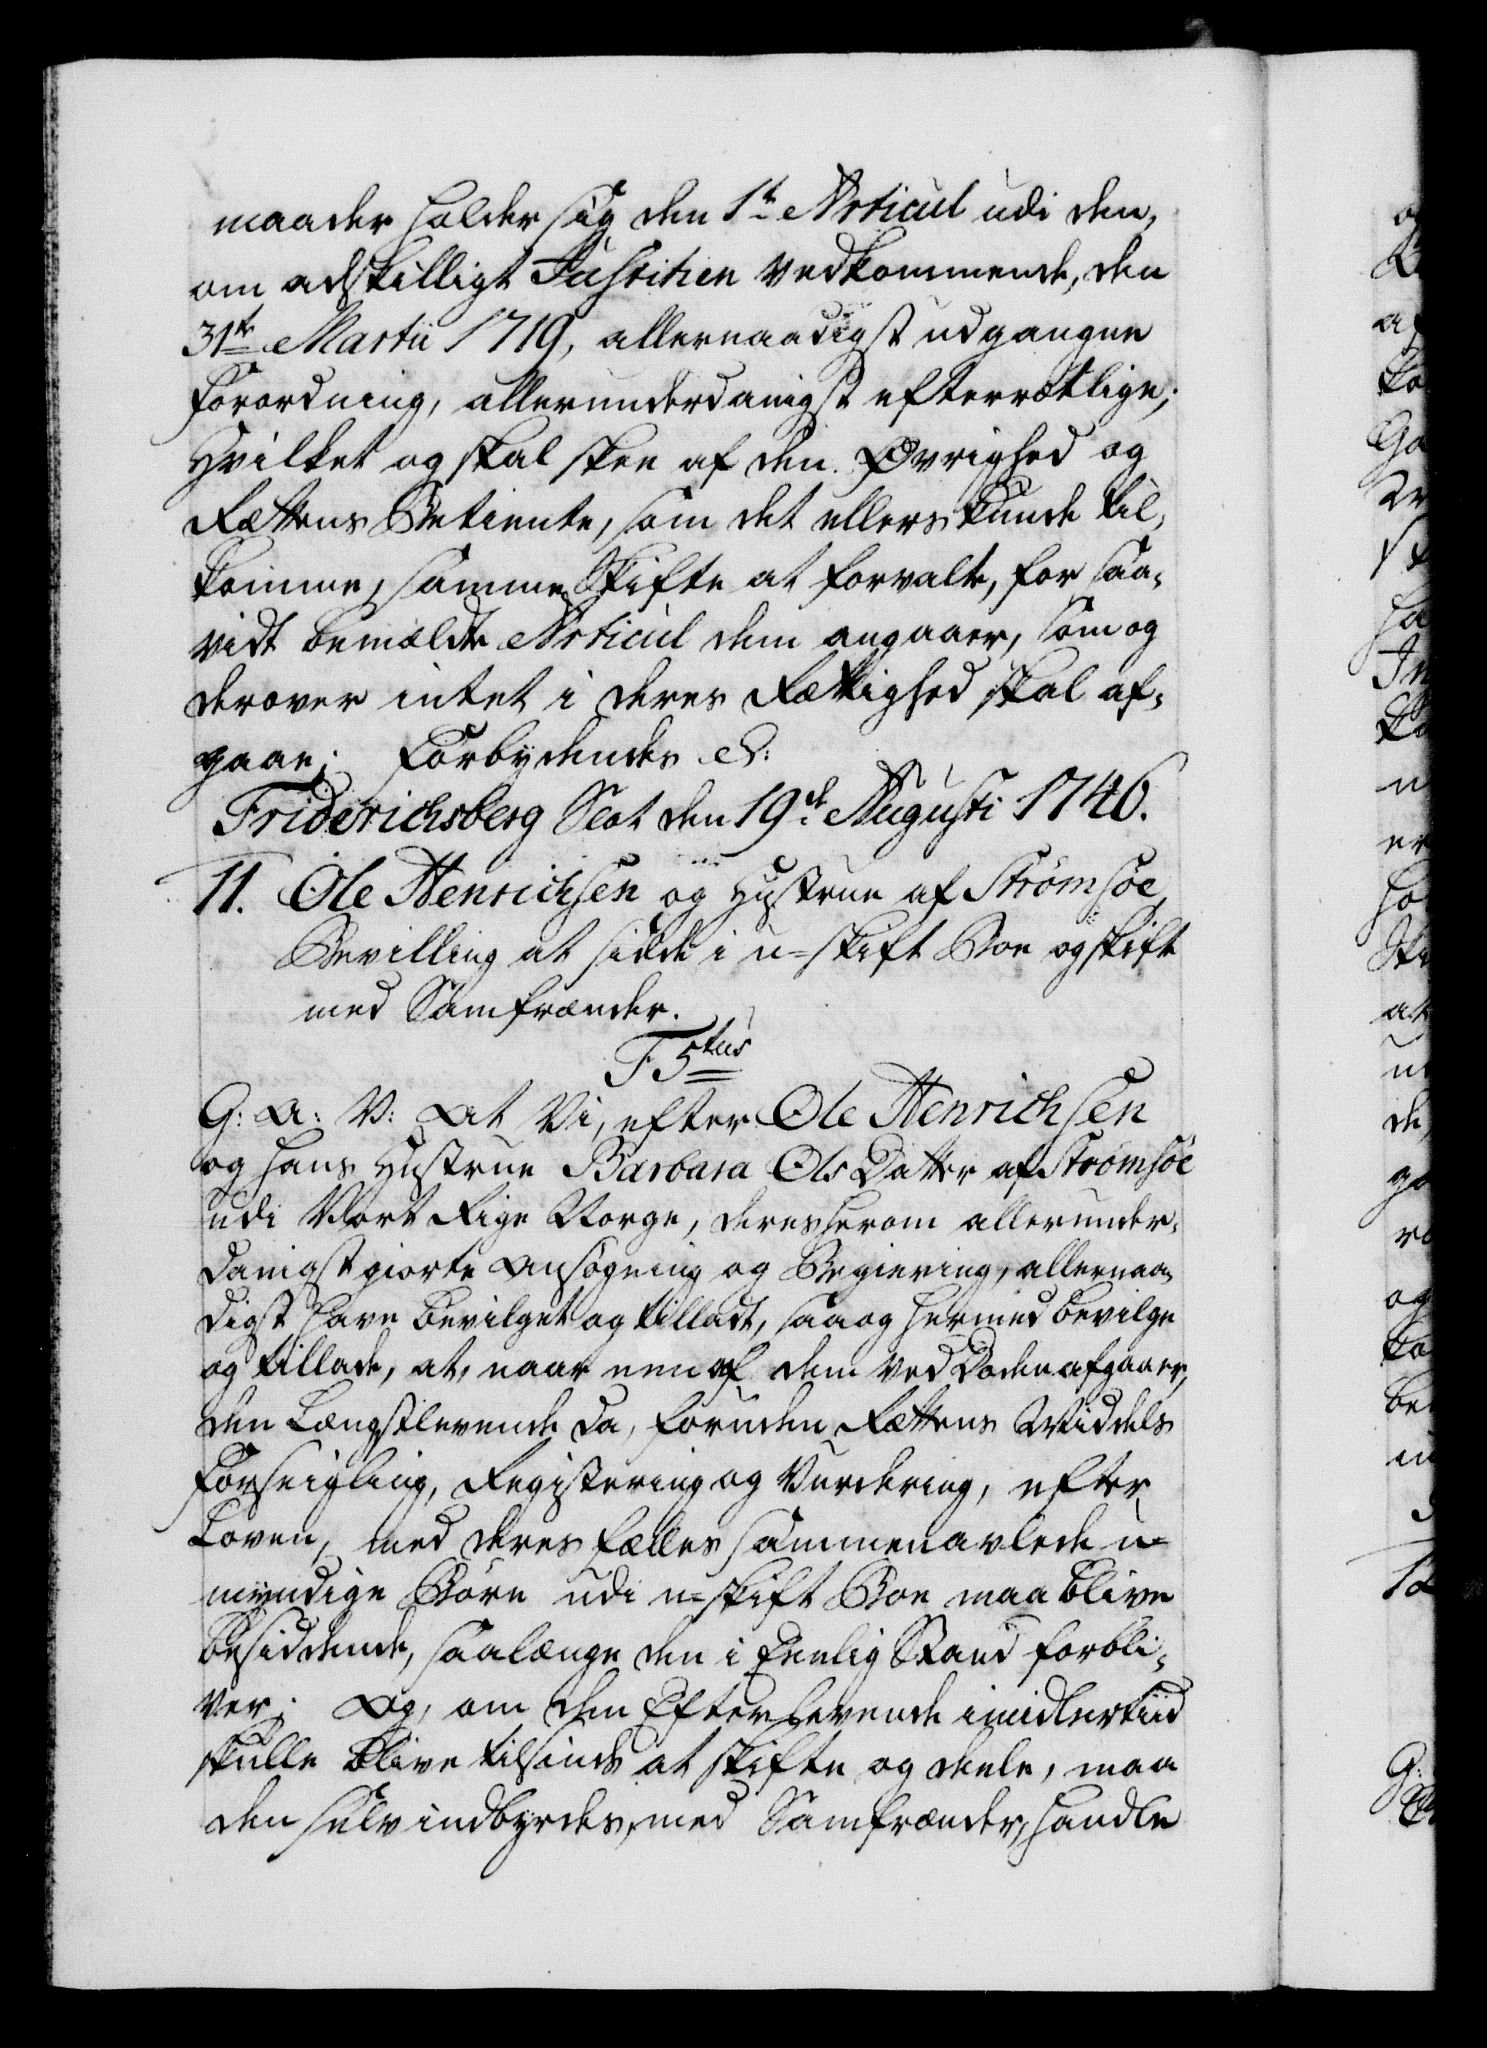 maader holder sig den 1te Articul udi den,
om adskilligt Justitien vedkommende, den
31te Martii 1719, allernaadigst udgangne
Forordning, allerunderdanigst efterrettlige;
Hvilket og skal skee af den Øvrighed og
Rettens Betiente, som det ellers kunde til,
komme, samme Skifte at forvalte, for saa,
vidt bemældte Articul dem angaaer, som og
derover intet i deres Rettighed skal af,
gaae; Forbydendes &:
Friderichsberg Slot den 19de Augusti 1746.
11. Ole Henrichsen og Hustrue af Strømsøe,
Bevilling at sidde i u=skift Boe og skifte
med Samfrænder.
F 5tus
G: A: V: At Vi, efter Ole Henrichsen
og hans Hustrue Barbara Ols Datter af Strømsøe
udi Vort Rige Norge, deres herom allerunder,
danigst giorte Ansøgning og Begiering, allernaa,
digst have bevilget og tilladt, saa og hermed bevilge
og tillade, at, naar een af dem ved Døden afgaaer,
den Længstlevende da, foruden Rettens Middels
Forseigling, Registering og Vurdering, efter
Loven, med deres fælles sammenavlede u=
myndige Børn udi u=skift Boe maa blive
besiddende, saalænge den i Eenlig Stand forbli,
ver; Og, om den Efterlevende imidlertiid
skulle blive tilsinds at skifte og deele, maa
den selv indbyrdes, med Samfrænder, handle